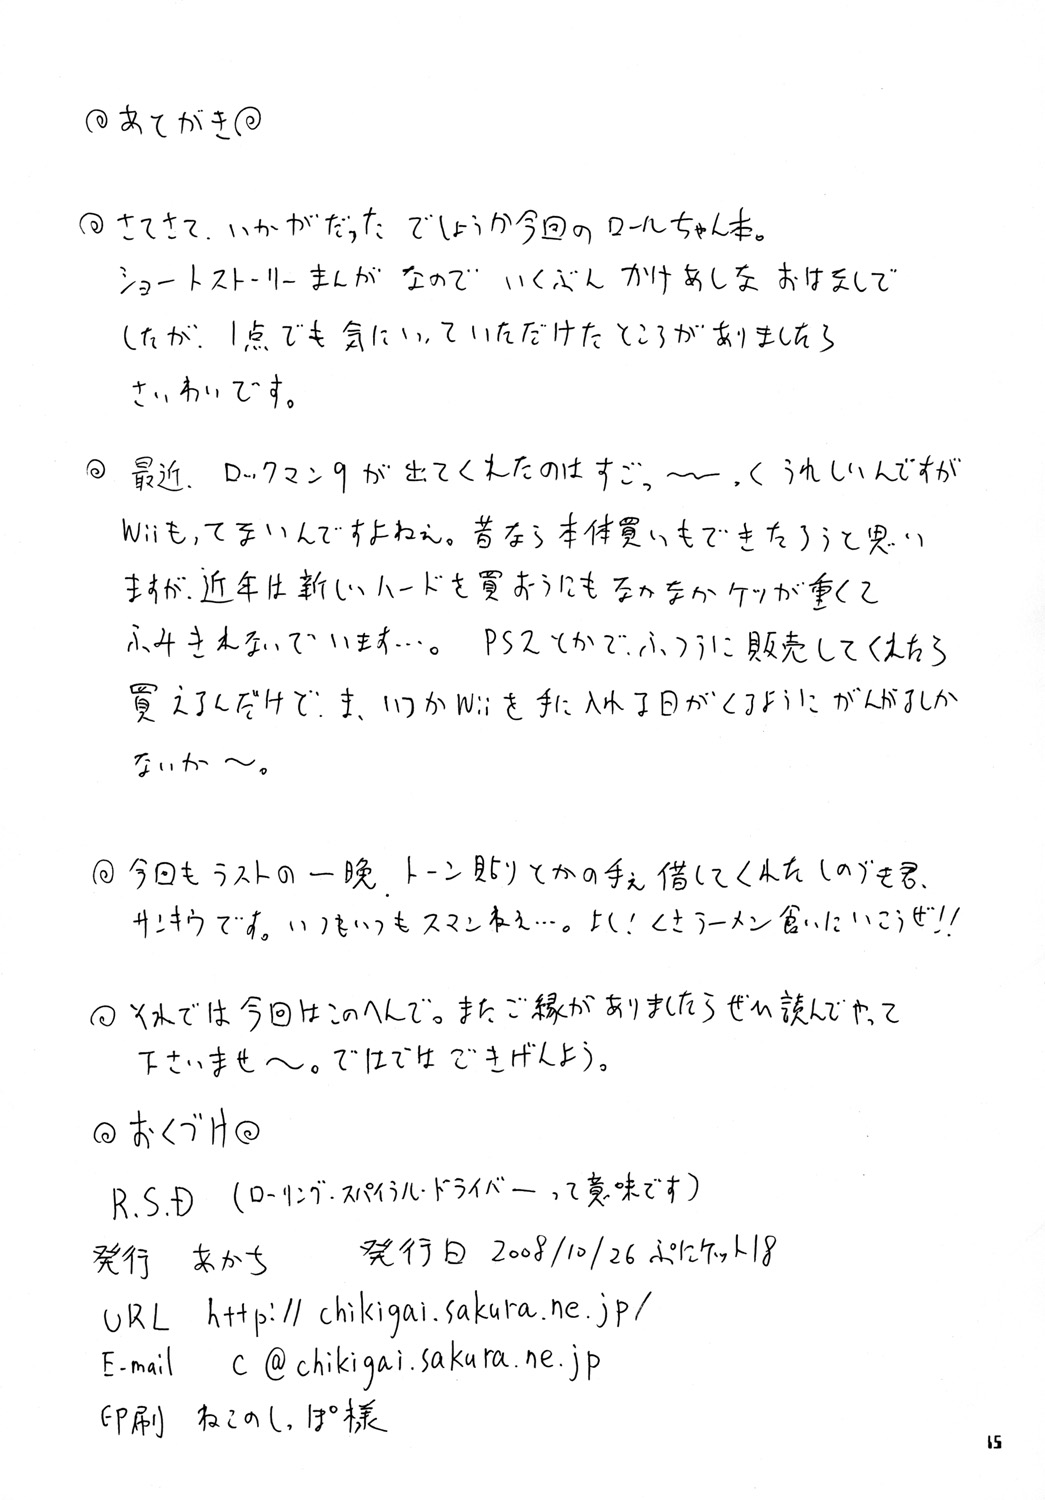 あとがき
さてさて、いかがだったでしょうか今回のロールちゃん本。
ショートストーリーまんがなのでいくぶんかけあしなおはなしで
したが、1点でも気にいっていただけたところがありましたら
さいわいです。
最近、ロックマン9が出てくれたのはすごっ〜〜、くうれしいんですが
Wiiもってないんですよねぇ。昔なら本体買いもできたろうと思い
ますが、近年は新しいハードを買おうにもなかなかケツが重くて
ふみきれないでいます…。PS2とかで、ふつうに販売してくれたら
買えるんだけど、ま、いつかWiiを手に入れる日がくるようにがんばるしか
ないか〜。
今回もラストの一晩、トーン貼りとかの手ぇ借してくれたしのづも君、
サンキウです。いつもいつもスマンねぇ…。よし!くさラーメン食いにいこうぜ!!
それでは今回はこのへんで。またご縁がありましたらぜひ読んでやって
下さいませ〜。ではではごきげんよう。
おくづけ
R.S.D (ローリング・スパイラル・ドライバーって意味です)
発行 あかち 発行日 2008/10/26 ぷにケット18
URL http://chikigai.sakura.ne.jp/
E-mail c@chikigai.sakura.ne.jp
印刷 ねこのしっぽ様
15